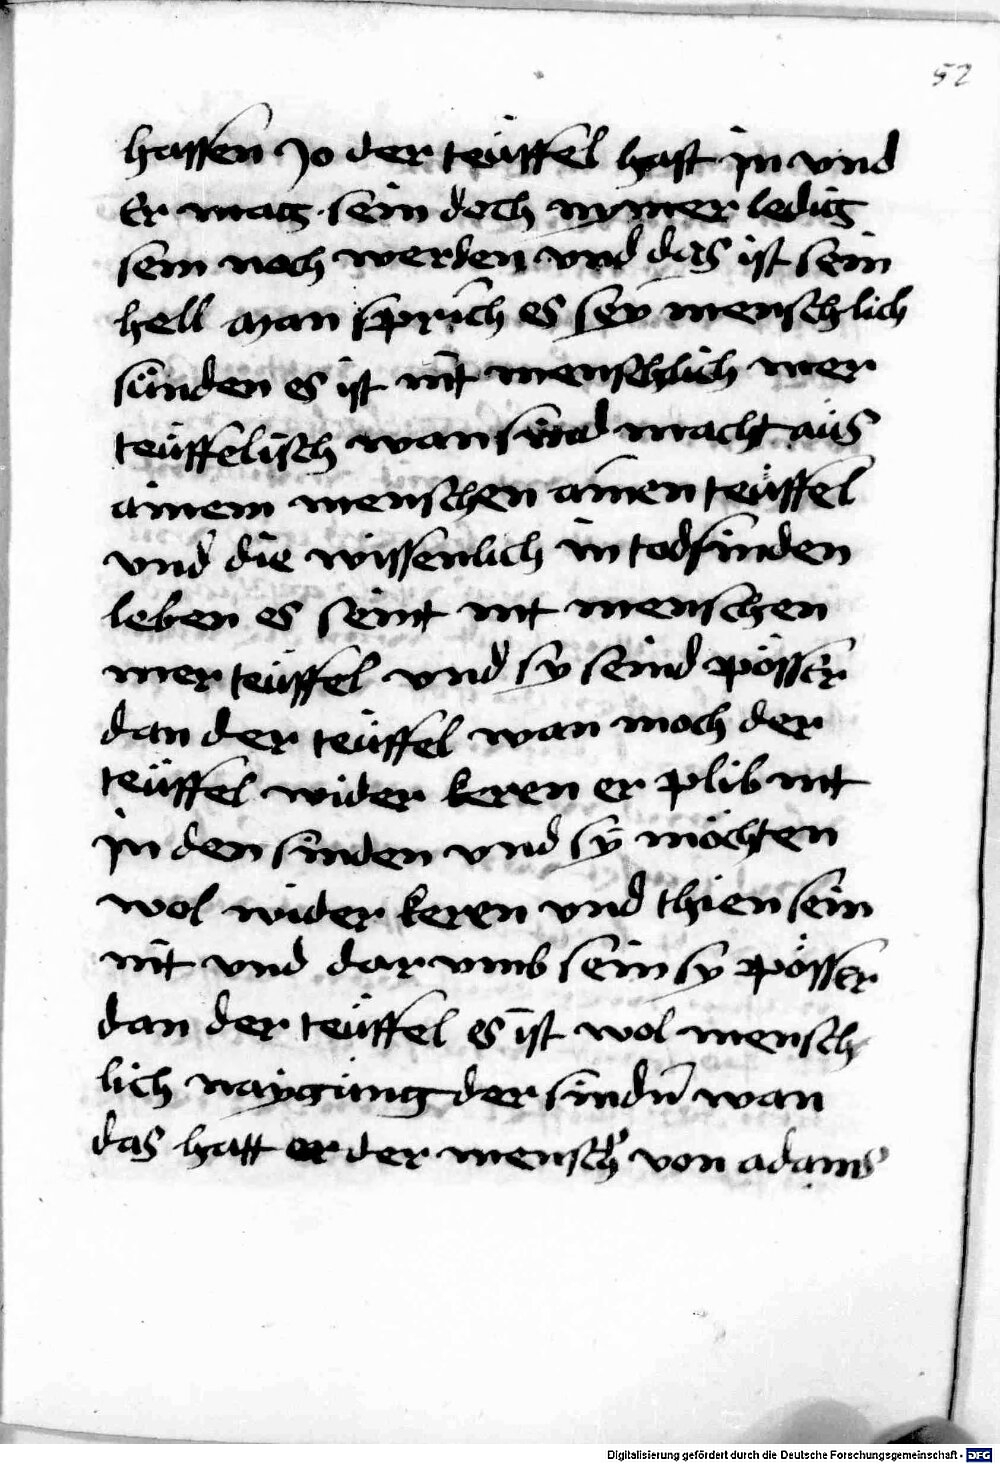 52
hassen Jo der teüffel hast in vnd
Er mag sein doch nymer ledig
sein noch werden vnd das ist sein
hell man sprich es sey menschlich
sünden es ist nit menschlich mer
teüffelisch wan sünd macht aüs
ainem menschen ainen teüffel
vnd die wissenlich in todsinden
leben es seint nit menschen
mer teüffel vnd sy seind pösser
dan der teüffel wan moch der
teüffel wider keren er plib nit
in den sinden vnd sy möchten
wol wider keren vnd thien sein
nit vnd dar vmb sein sy pösser
dan der teüffel es ist wol mensch
lich naygüng der sindn̄ wan
das hatt er der mensch von adams
Digitalisierung gefördert durch die Deutsche Forschungsgemeinschaft - DFG